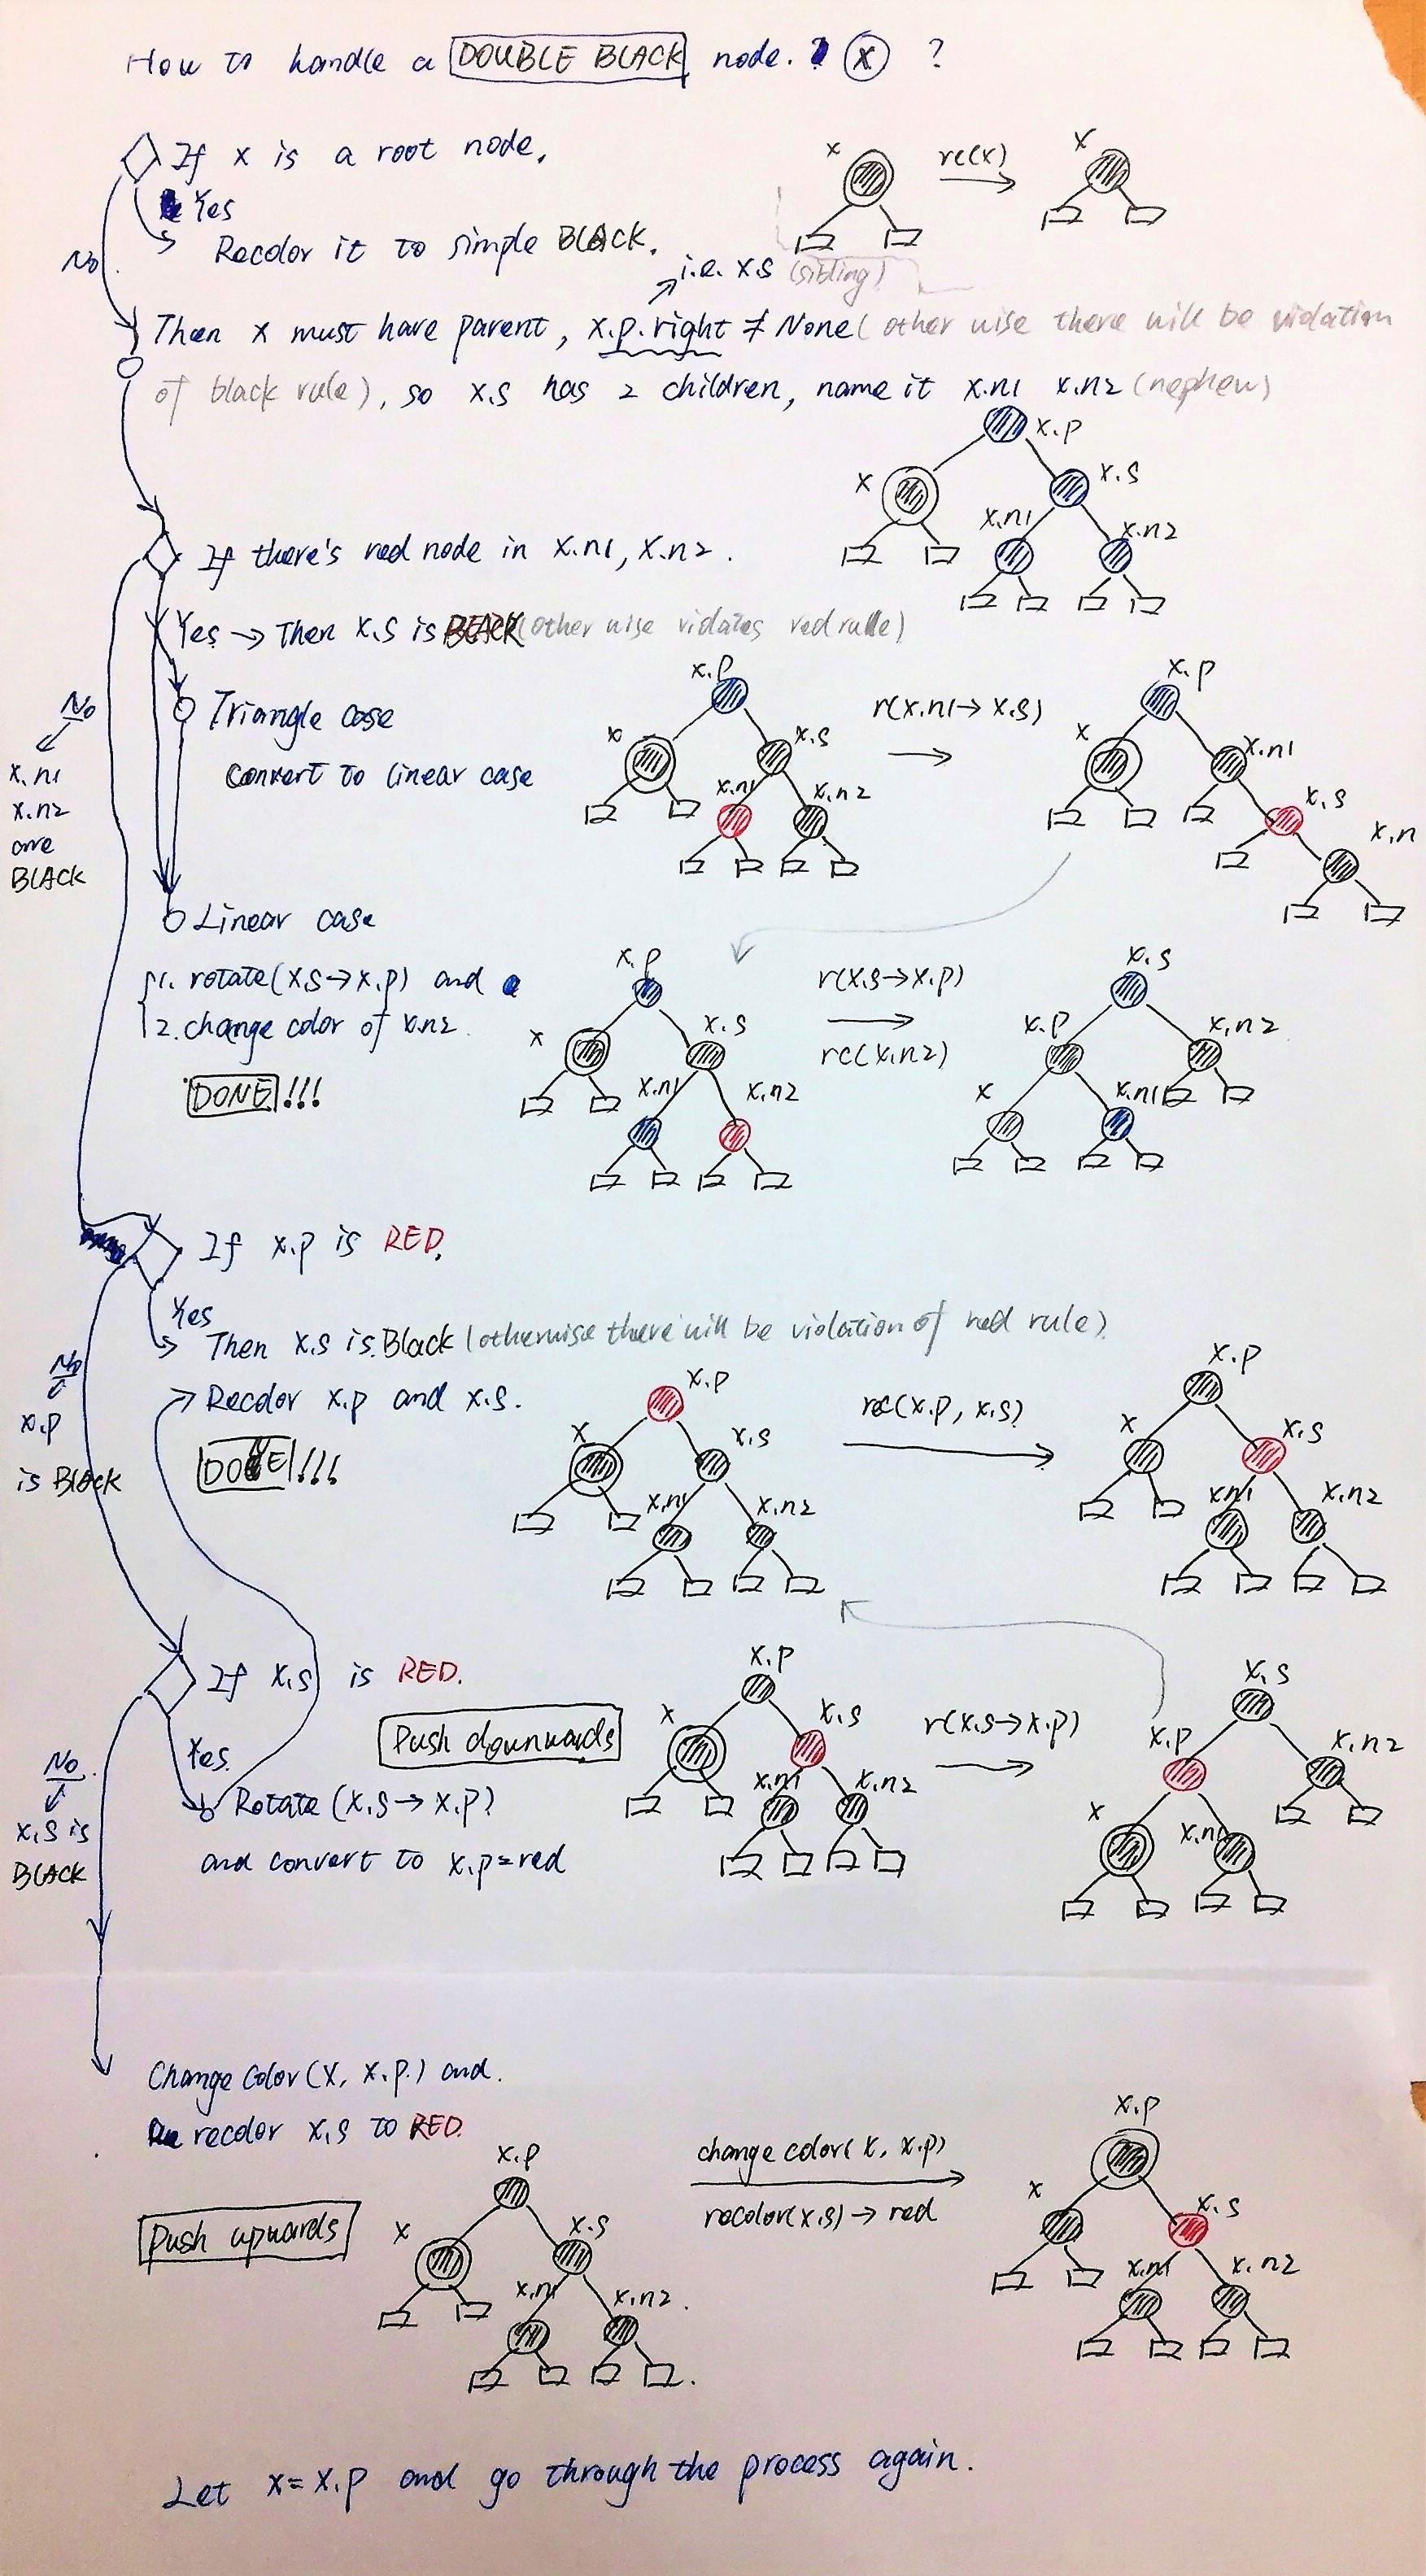 How to handle a DOUBLE BLACK node. X ?
If x is a root node,
Yes
Recolor it to simple BLACK.
No
x
rc(x)
x
i.e. x.s (sibling)
Then x must have parent, x.p.right ≠ None (other wise there will be violation
of black rule), so x.s has 2 children, name it x.n1 x.n2 (nephew)
x.p
x
x.s
x.n1
x.n2
If there's red node in x.n1, x.n2.
Yes → Then x.s is BLACK (other wise violates red rule)
No
x.n1
x.n2
are
BLACK
Triangle case
Convert to linear case
x.p
x
x.s
x.n1
x.n2
r(x.n1→x.s)
x.p
x
x.n1
x.s
x.n
Linear case
1. rotate(x.s→x.p) and
2. change color of x.n2
DONE!!!
x.p
x
x.s
x.n1
x.n2
r(x.s→x.p)
rc(x.n2)
x.s
x.p
x.n2
x
x.n1
If x.p is RED.
Yes
Then x.s is Black (otherwise there will be violation of red rule)
Recolor x.p and x.s.
DONE!!!
No
x.p
is Black
x.p
x
x.s
x.n1
x.n2
rc(x.p, x.s)
x.p
x
x.s
x.n1
x.n2
If x.s is RED.
Push downwards
Yes
Rotate (x.s→x.p)
and convert to x.p=red
No
x.s is
BLACK
x.p
x
x.s
x.n1
x.n2
r(x.s→x.p)
x.s
x.p
x.n2
x
x.n1
Change color(x, x.p.) and.
recolor x.s to RED.
Push upwards
x.p
x
x.s
x.n1
x.n2.
change color(x, x.p)
recolor(x.s)→red
x.p
x
x.s
x.n1
x.n2
Let x=x.p and go through the process again.